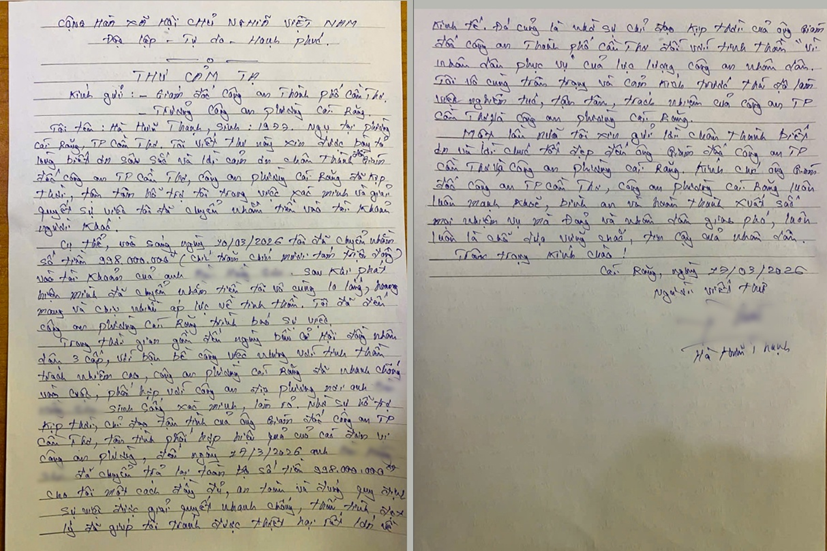 CỘNG HÒA XÃ HỘI CHỦ NGHĨA VIỆT NAM
Độc lập - Tự do - Hạnh phúc.
THƯ CẢM TẠ
Kính gửi: - Giám đốc Công an Thành phố Cần Thơ.
- Trưởng Công an phường Cái Răng.
Tôi tên: Hà Hoài Thanh, sinh: 1977. Ngụ tại phường
Cái Răng, TP Cần Thơ. Tôi viết thư này xin được bày tỏ
lòng biết ơn sâu sắc và lời cảm ơn chân thành đến Giám
đốc công an TP Cần Thơ, Công an phường Cái Răng đã kịp
thời, tận tâm hỗ trợ tôi trong việc xác minh và giải
quyết sự việc tôi đã chuyển nhầm tiền vào tài khoản
người khác.
Cụ thể, vào sáng ngày 20/03/2026 tôi đã chuyển nhầm
số tiền 998.000.000đ (chín trăm chín mươi tám triệu đồng)
vào tài khoản của anh sau khi phát
hiện mình đã chuyển nhầm tiền tôi vô cùng lo lắng, hoang
mang và chịu nhiều áp lực về tinh thần. Tôi đã đến
công an phường Cái Răng trình báo sự việc.
Trong thời gian gần đến ngày bầu cử Hội đồng nhân
dân 3 cấp, với bộn bề công việc nhưng với tinh thần
trách nhiệm cao, công an phường Cái Răng đã nhanh chóng
vào cuộc, phối hợp với công an địa phương nơi anh
sinh sống xác minh, làm rõ. Nhờ sự hỗ trợ
kịp thời, chỉ đạo tận tình của ông Giám đốc công an TP
Cần Thơ, tận tình phối hợp hiệu quả của các đơn vị
công an phường, đến ngày 27/3/2026 anh
đã chuyển trả lại toàn bộ số tiền 998.000.000đ
cho tôi một cách đầy đủ, an toàn và đúng quy định
sự việc được giải quyết nhanh chóng, thấu tình đạt
lý đã giúp tôi tránh được thiệt hại rất lớn về
kinh tế. Đó cũng là nhờ sự chỉ đạo kịp thời của ông Giám
đốc Công an Thành phố Cần Thơ đối với tinh thần "Vì
nhân dân phục vụ" của lực lượng công an nhân dân.
Tôi vô cùng trân trọng và cảm kích trước thái độ làm
việc nghiêm túc, tận tâm, trách nhiệm của công an TP
Cần Thơ và công an phường Cái Răng.
Một lần nữa tôi xin gửi lời chân thành biết
ơn và lời chúc tốt đẹp đến ông Giám đốc Công an TP
Cần Thơ và Công an phường Cái Răng. Kính chúc ông Giám
đốc công an TP Cần Thơ, Công an phường Cái Răng luôn
luôn mạnh khoẻ, bình an và hoàn thành xuất sắc
mọi nhiệm vụ mà Đảng và nhân dân giao phó, luôn
luôn là chỗ dựa vững chắc, tin cậy của nhân dân.
Trân trọng kính chào!
Cái Răng, ngày 29/03/2026
Người viết thư